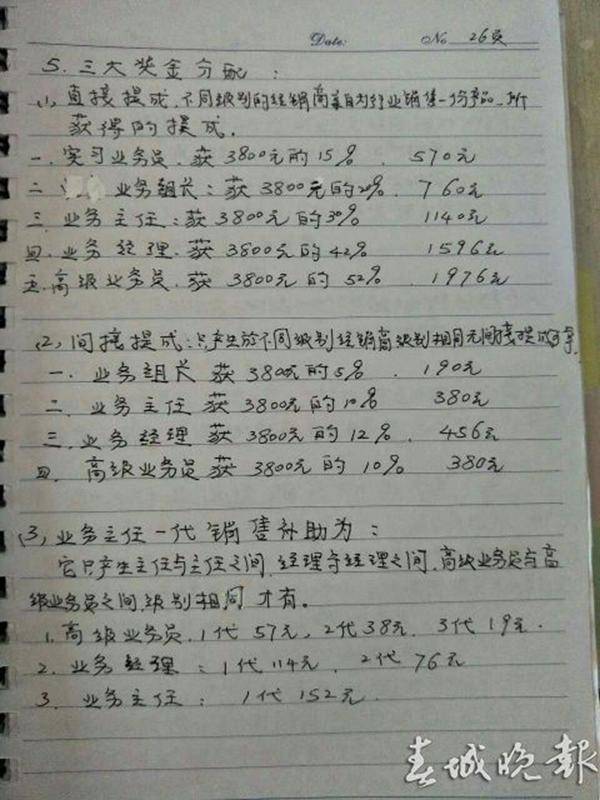 Date: No 26页
5.三大奖金分配:
(1)直接提成.不同级别的经销商亲自为行业销售一份产品.所
获得的提成.
一.实习业务员.获3800元的15%. 570元
二 业务组长:获3800元的20%. 760元
三.业务主任:获3800元的30% 1140元
四.业务经理.获3800元的42% 1596元
五.高级业务员.获3800元的52% 1976元
(2)间接提成:只产生於不同级别经销商级别相同无间接提成可拿
一.业务组长获3800元的5%. 190元
二.业务主任获3800元的10% 380元
三.业务经理获3800元的12%. 456元
四.高级业务员获3800元的10% 380元
(3)业务主任一代销售补助为:
它只产生主任与主任之间.经理与经理之间.高级业务员与高
级业务员之间级别相同才有。
1.高级业务员.1代57元,2代38元.3代19元.
2.业务经理:1代114元.2代76元
3.业务主任:1代152元.
春城晚報